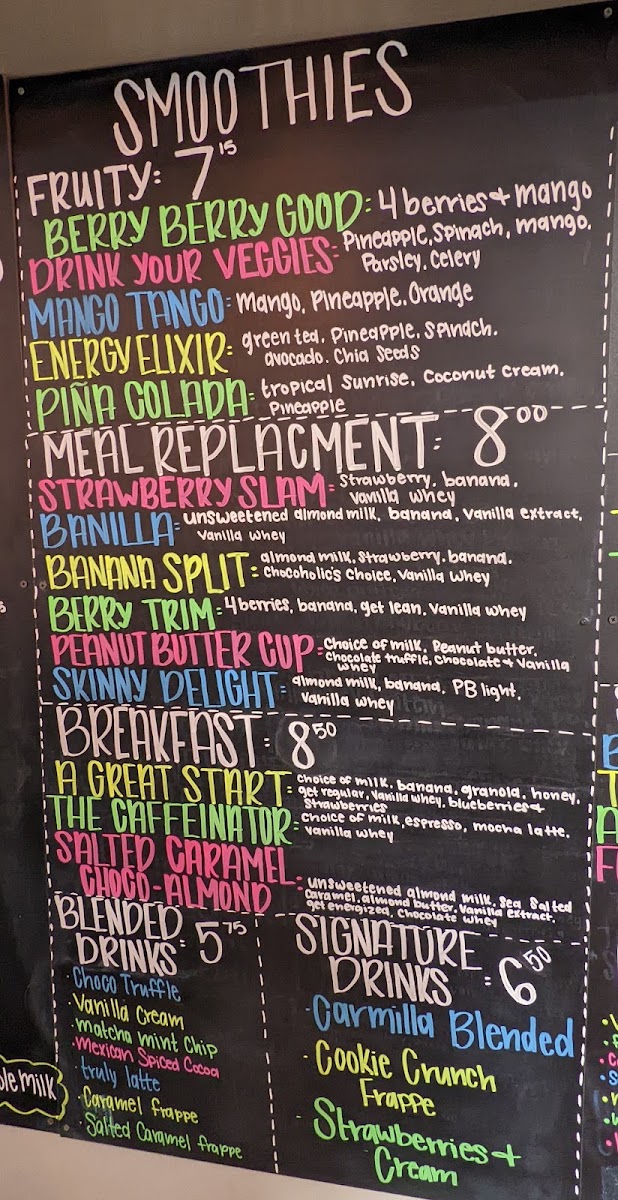 SMOOTHIES
FRUITY: 7 15
BERRY BERRY GOOD: 4 berries + mango
DRINK YOUR VEGGIES: Pineapple, Spinach, mango,
Parsley, Celery
MANGO TANGO: Mango, Pineapple, Orange
ENERGY ELIXIR: green tea, Pineapple, Spinach,
avocado, Chia Seeds
PIÑA COLADA: tropical Sunrise, Coconut Cream,
Pineapple
MEAL REPLACMENT: 8 00
STRAWBERRY SLAM: Strawberry, banana,
Vanilla whey
BANILLA: unsweetened almond milk, banana, Vanilla extract,
Vanilla whey
BANANA SPLIT: almond milk, Strawberry, banana,
Chocoholic's Choice, Vanilla Whey
BERRY TRIM: 4 berries, banana, get lean, Vanilla whey
PEANUT BUTTER CUP: Choice of milk, Peanut butter,
Chocolate truffle, Chocolate + Vanilla
whey
SKINNY DELIGHT: almond milk, banana, PB light,
Vanilla whey
BREAKFAST: 8 50
A GREAT START: choice of milk, banana, granola, honey,
get regular, Vanilla whey, blueberries +
Strawberries
THE CAFFEINATOR: choice of milk, espresso, mocha latte,
vanilla whey
SALTED CARAMEL
CHOCO-ALMOND: unsweetened almond milk, Sea Salted
Caramel, almond butter, Vanilla extract,
get energized, Chocolate whey
BLENDED
DRINKS: 5 75
· Choco Truffle
· Vanilla Cream
· matcha mint Chip
· Mexican Spiced Cocoa
· truly latte
· Caramel frappe
· Salted Caramel frappe
SIGNATURE
DRINKS: 6 50
· Carmilla Blended
· Cookie Crunch
Frappe
· Strawberries +
Cream
milk